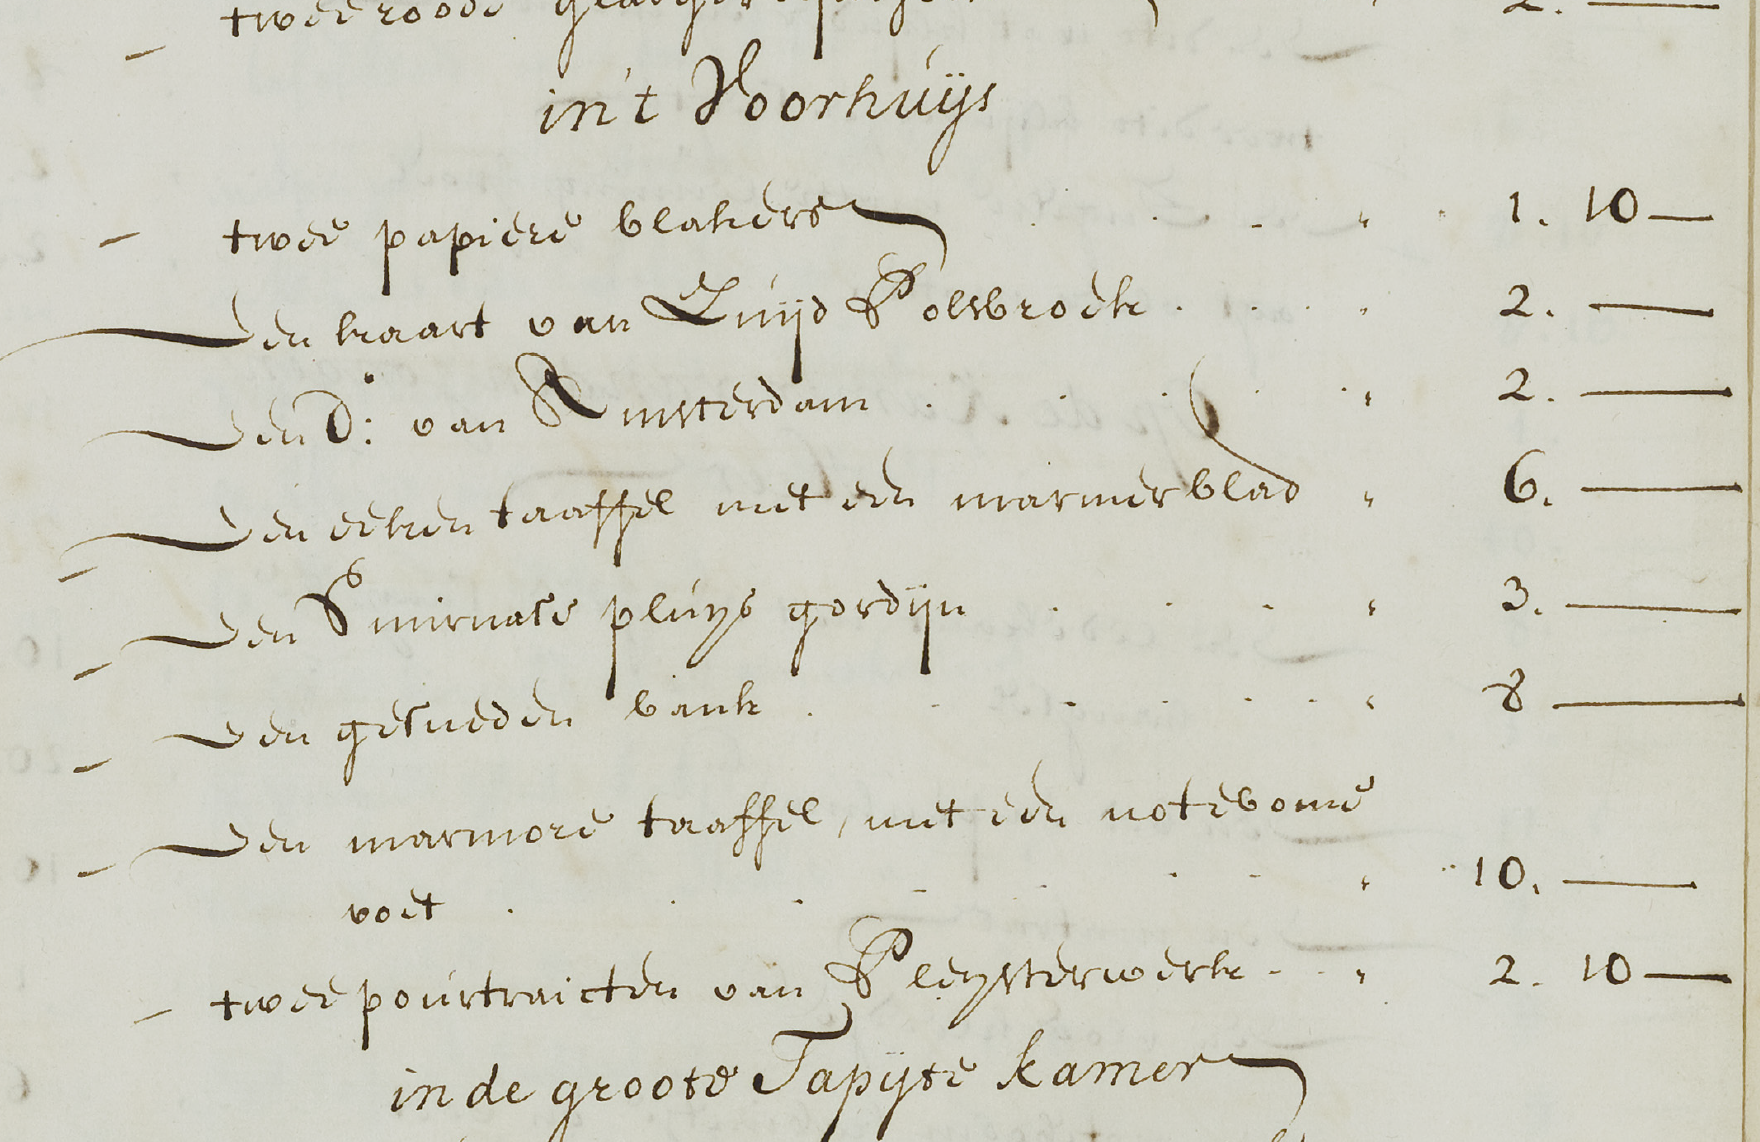 twee roode 2. —
in't Voorhuijs
twee papiere blakers " 1. 10 —
Een kaart van Zuijd Polsbroek " 2. —
Een D: van Amsterdam " 2. —
Een eeken taaffel met een marmerblad " 6. —
Een Smirnase pluys gordijn " 3. —
Een gesneden bank " 8 —
Een marmore taaffel, met een notebome
voet " 10. —
twee pourtraicten van Pleysterwerk " 2. 10 —
in de groote Tapijte kamer